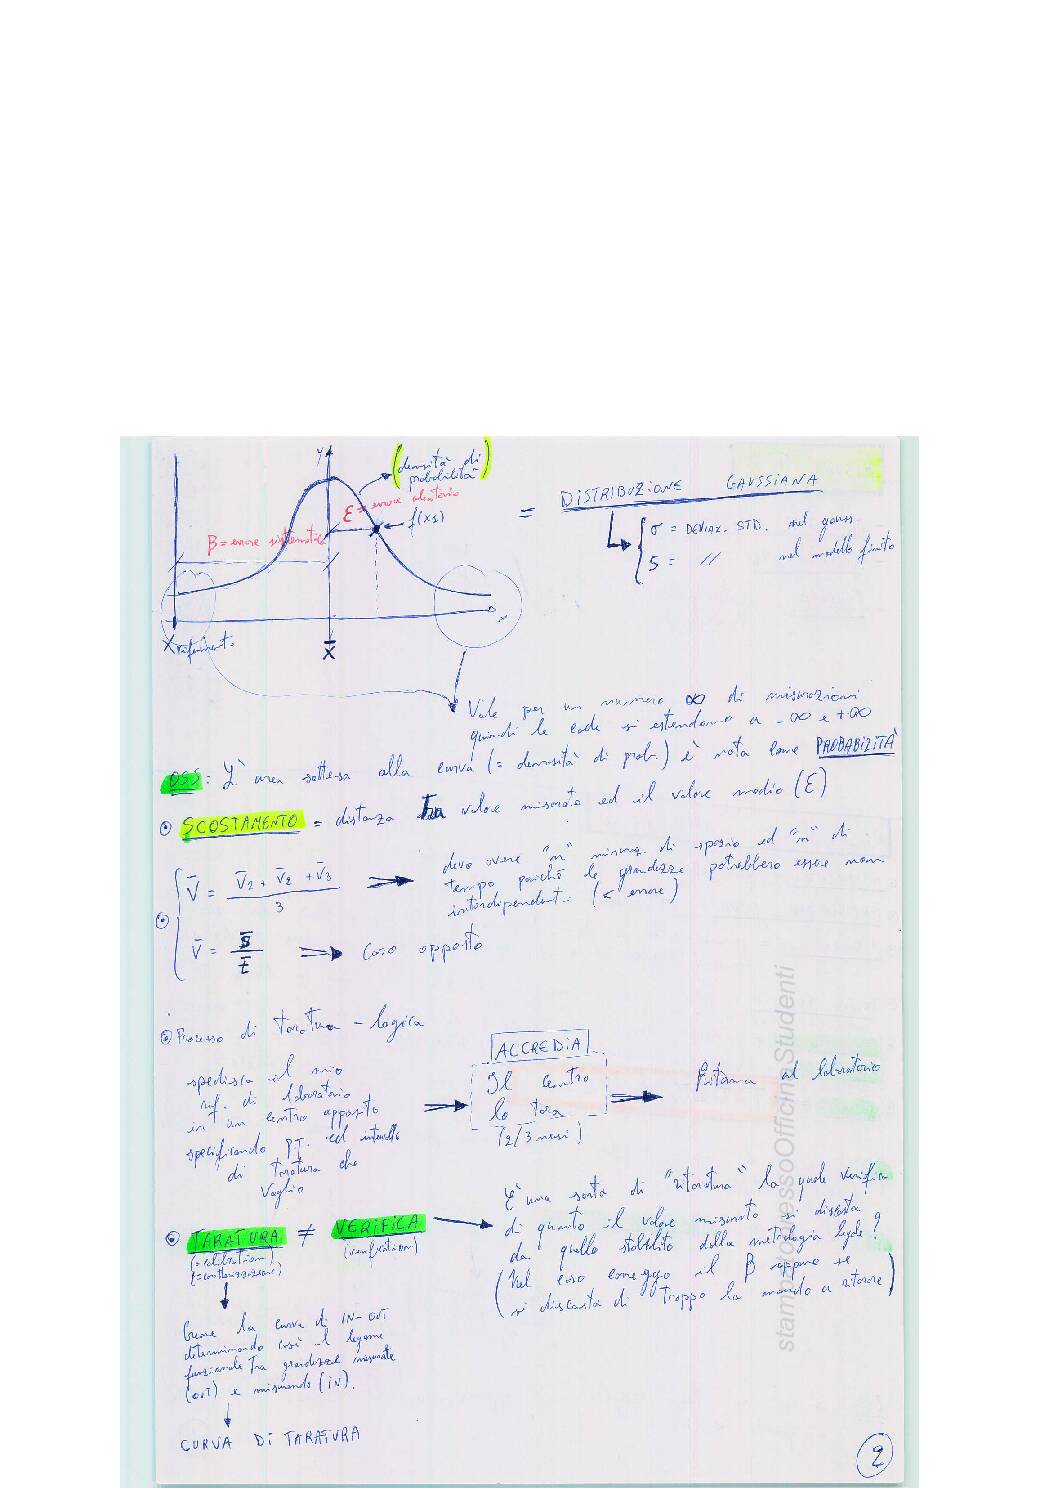 y
(densità di
probabilità)
ε = errore aleatorio
f(x1)
β = errore sistematico
x
X riferimento
X̄
= DISTRIBUZIONE GAUSSIANA
σ = DEVIAZ. STD. nel gauss.
S = // nel modello finito
Vale per un numero ∞ di misurazioni
quindi le code si estendono a -∞ e +∞
OSS: L'area sottesa alla curva (= densità di prob.) è nota come PROBABILITÀ
SCOSTAMENTO = distanza tra valore misurato ed il valore medio (ε)
V̄ = V̄2 + V̄2 + V̄3 / 3
devo avere "n" misuraz. di spazio ed "n" di
tempo poiché le grandezze potrebbero essere non
interdipendenti (< errore)
V̄ = S̄ / t̄
Caso opposto
Processo di taratura - logica
spedisco il mio
rif. di laboratorio
in un centro apposito
specificando P.T. ed intervallo
di taratura che
voglio
ACCREDIA
Il centro
lo tara
(2/3 mesi)
Ritorna al laboratorio
TARATURA ≠ VERIFICA
(= calibration)
(verification)
È una sorta di "ritaratura" la quale verifica
di quanto il valore misurato si discosta
da quello stabilito dalla metrologia legale?
(Nel caso correggo il β oppure se
si discosta di troppo lo mando a ritarare)
Creare la curva di IN-OUT
determinando così il legame
funzionale tra grandezze misurate
(OUT) e misurando (IN).
CURVA DI TARATURA
2
stampatopressoOfficinaStudenti